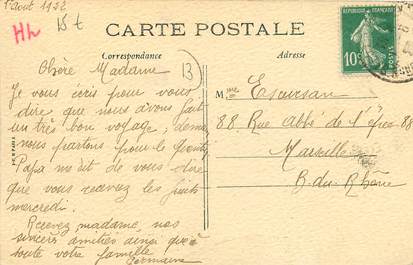 1 août 1922
Hh
15 t
CARTE POSTALE
Correspondance
Adresse
RÉPUBLIQUE FRANÇAISE
10c
POSTES
Chère Madame
13
Je vous écris pour vous
dire que nous avons fait
un très bon voyage, demain
nous partons pour le
Papa me dit de vous dire
que vous recevrez les
mercredi.
Recevez madame, nos
sincères amitiés ainsi que
toute votre famille
Germaine
Mme Escursan
88 Rue abbé de l'épée 88
Marseille
B.-du-Rhône